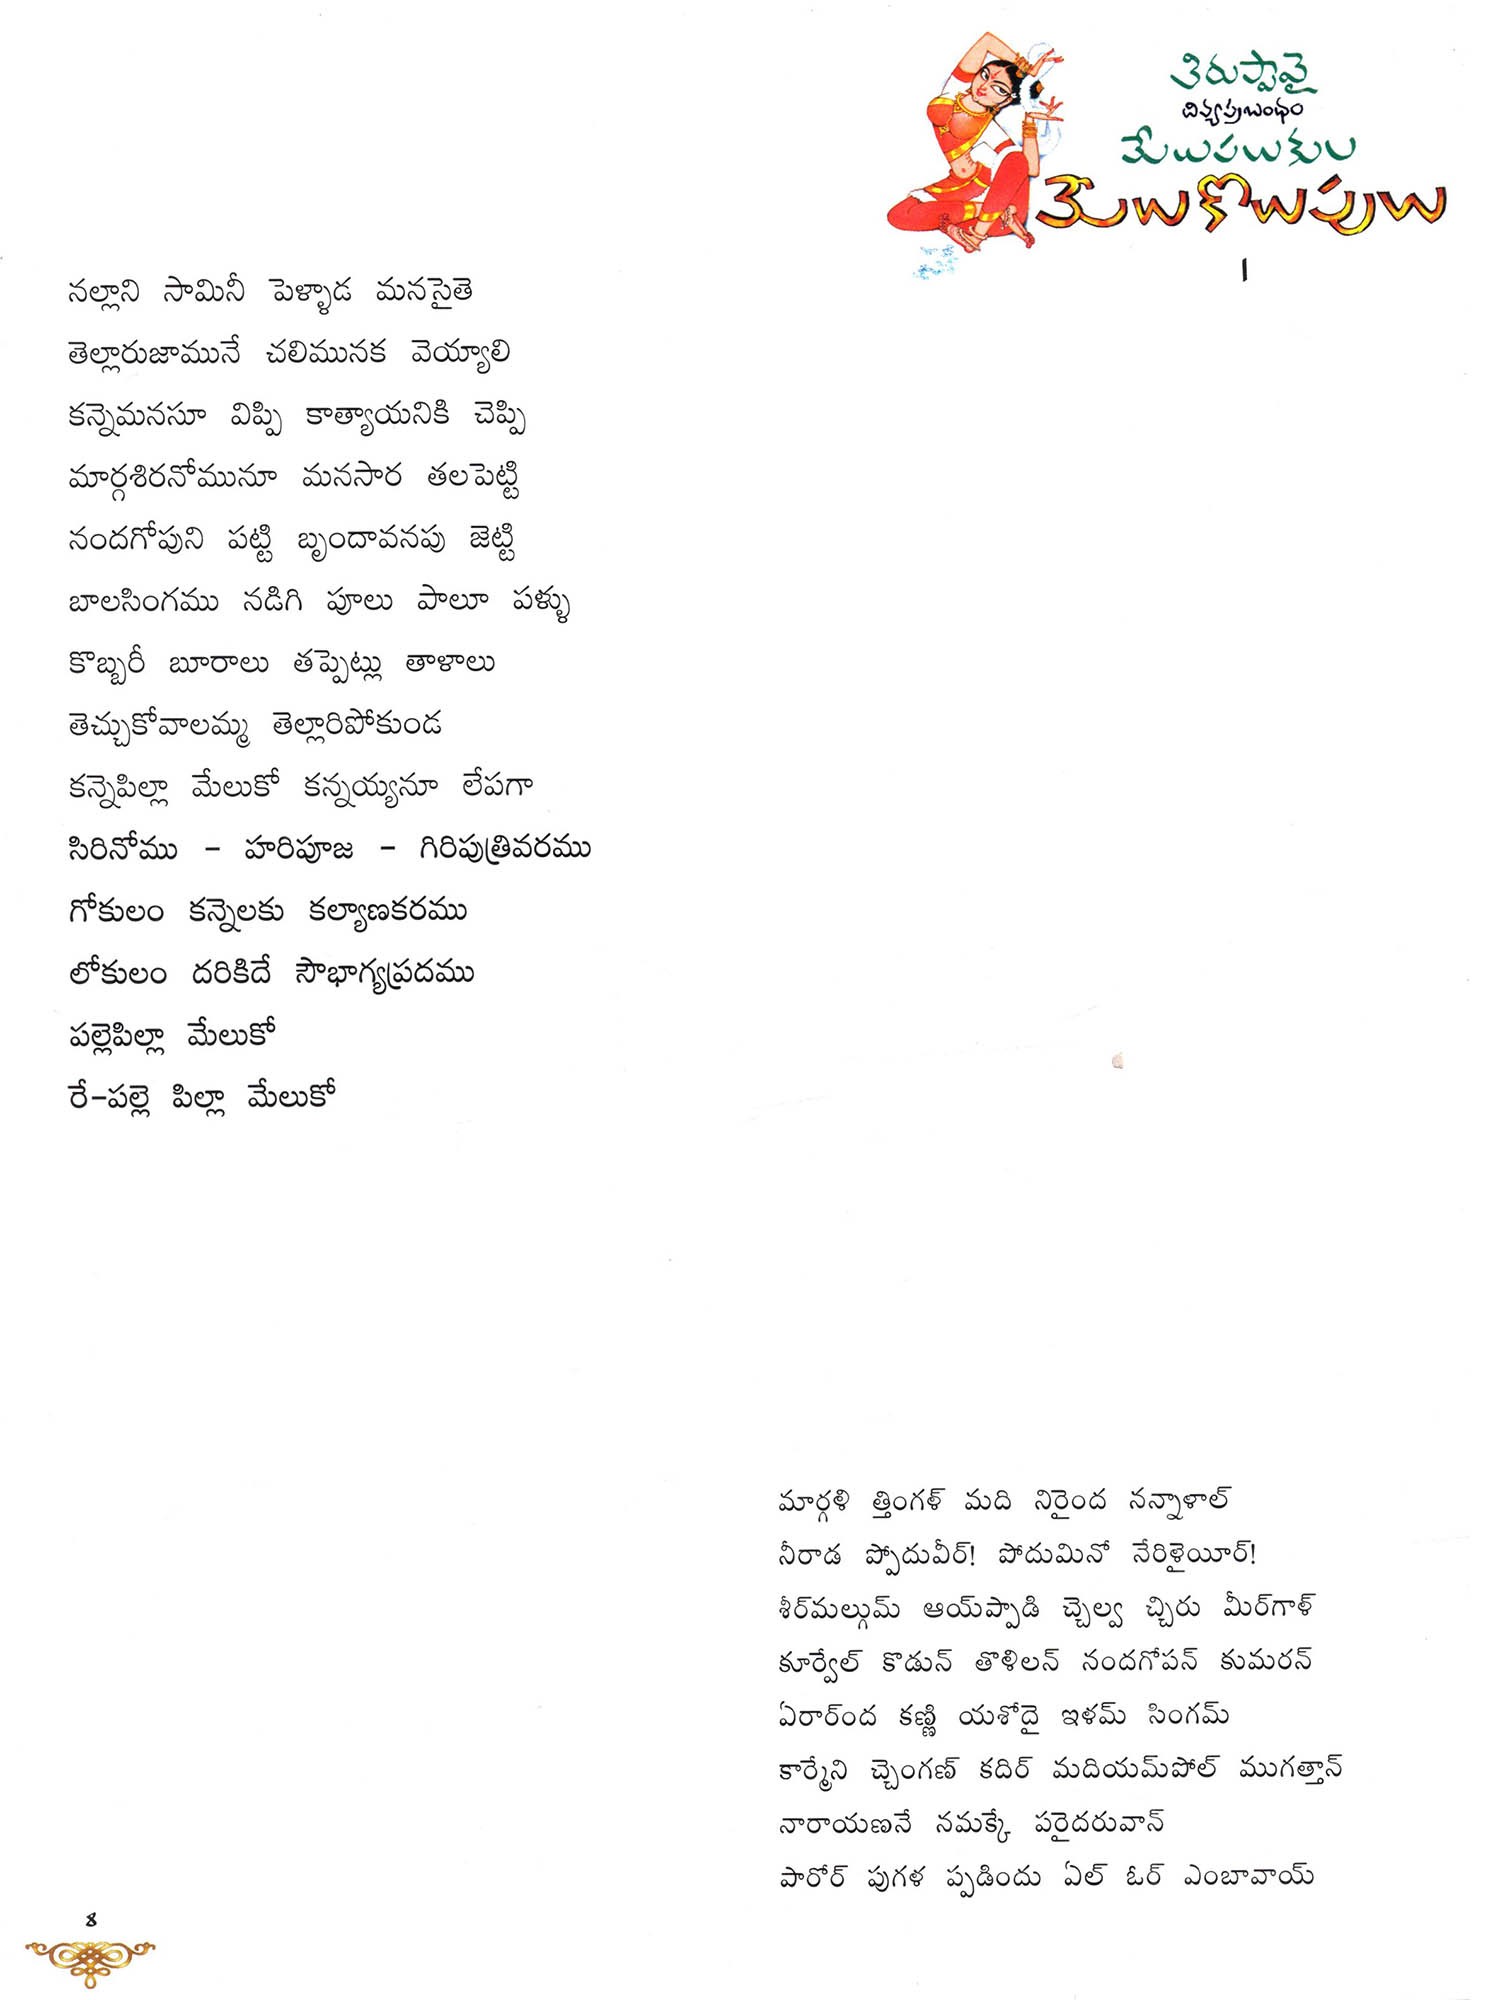 తిరుప్పావై
దివ్యప్రబంధం
మేలుపలుకుల
మేలుకొలుపులు
1
నల్లాని సామినీ పెళ్ళాడ మనసైతె
తెల్లారుజామునే చలిమునక వెయ్యాలి
కన్నెమనసూ విప్పి కాత్యాయనికి చెప్పి
మార్గశిరనోమునూ మనసార తలపెట్టి
నందగోపుని పట్టి బృందావనపు జెట్టి
బాలసింగము నడిగి పూలు పాలూ పళ్ళు
కొబ్బరీ బూరాలు తప్పెట్లు తాళాలు
తెచ్చుకోవాలమ్మ తెల్లారిపోకుండ
కన్నెపిల్లా మేలుకో కన్నయ్యనూ లేపగా
సిరినోము - హరిపూజ - గిరిపుత్రివరము
గోకులం కన్నెలకు కల్యాణకరము
లోకులం దరికిదే సౌభాగ్యప్రదము
పల్లెపిల్లా మేలుకో
రే-పల్లె పిల్లా మేలుకో
మార్గళి త్తింగళ్ మది నిరైంద నన్నాళాల్
నీరాడ ప్పోదువీర్! పోదుమినో నేరిళైయీర్!
శీర్‌మల్గుమ్ ఆయ్‌ప్పాడి చ్చెల్వ చ్చిరు మీర్‌గాళ్
కూర్వేల్ కొడున్ తొళిలన్ నందగోపన్ కుమరన్
ఏరార్‌ంద కణ్ణి యశోదై ఇళమ్ సింగమ్
కార్మేని చ్చెంగణ్ కదిర్ మదియమ్‌పోల్ ముగత్తాన్
నారాయణనే నమక్కే పరైదరువాన్
పారోర్ పుగళ ప్పడిందు ఏల్ ఓర్ ఎంబావాయ్
8